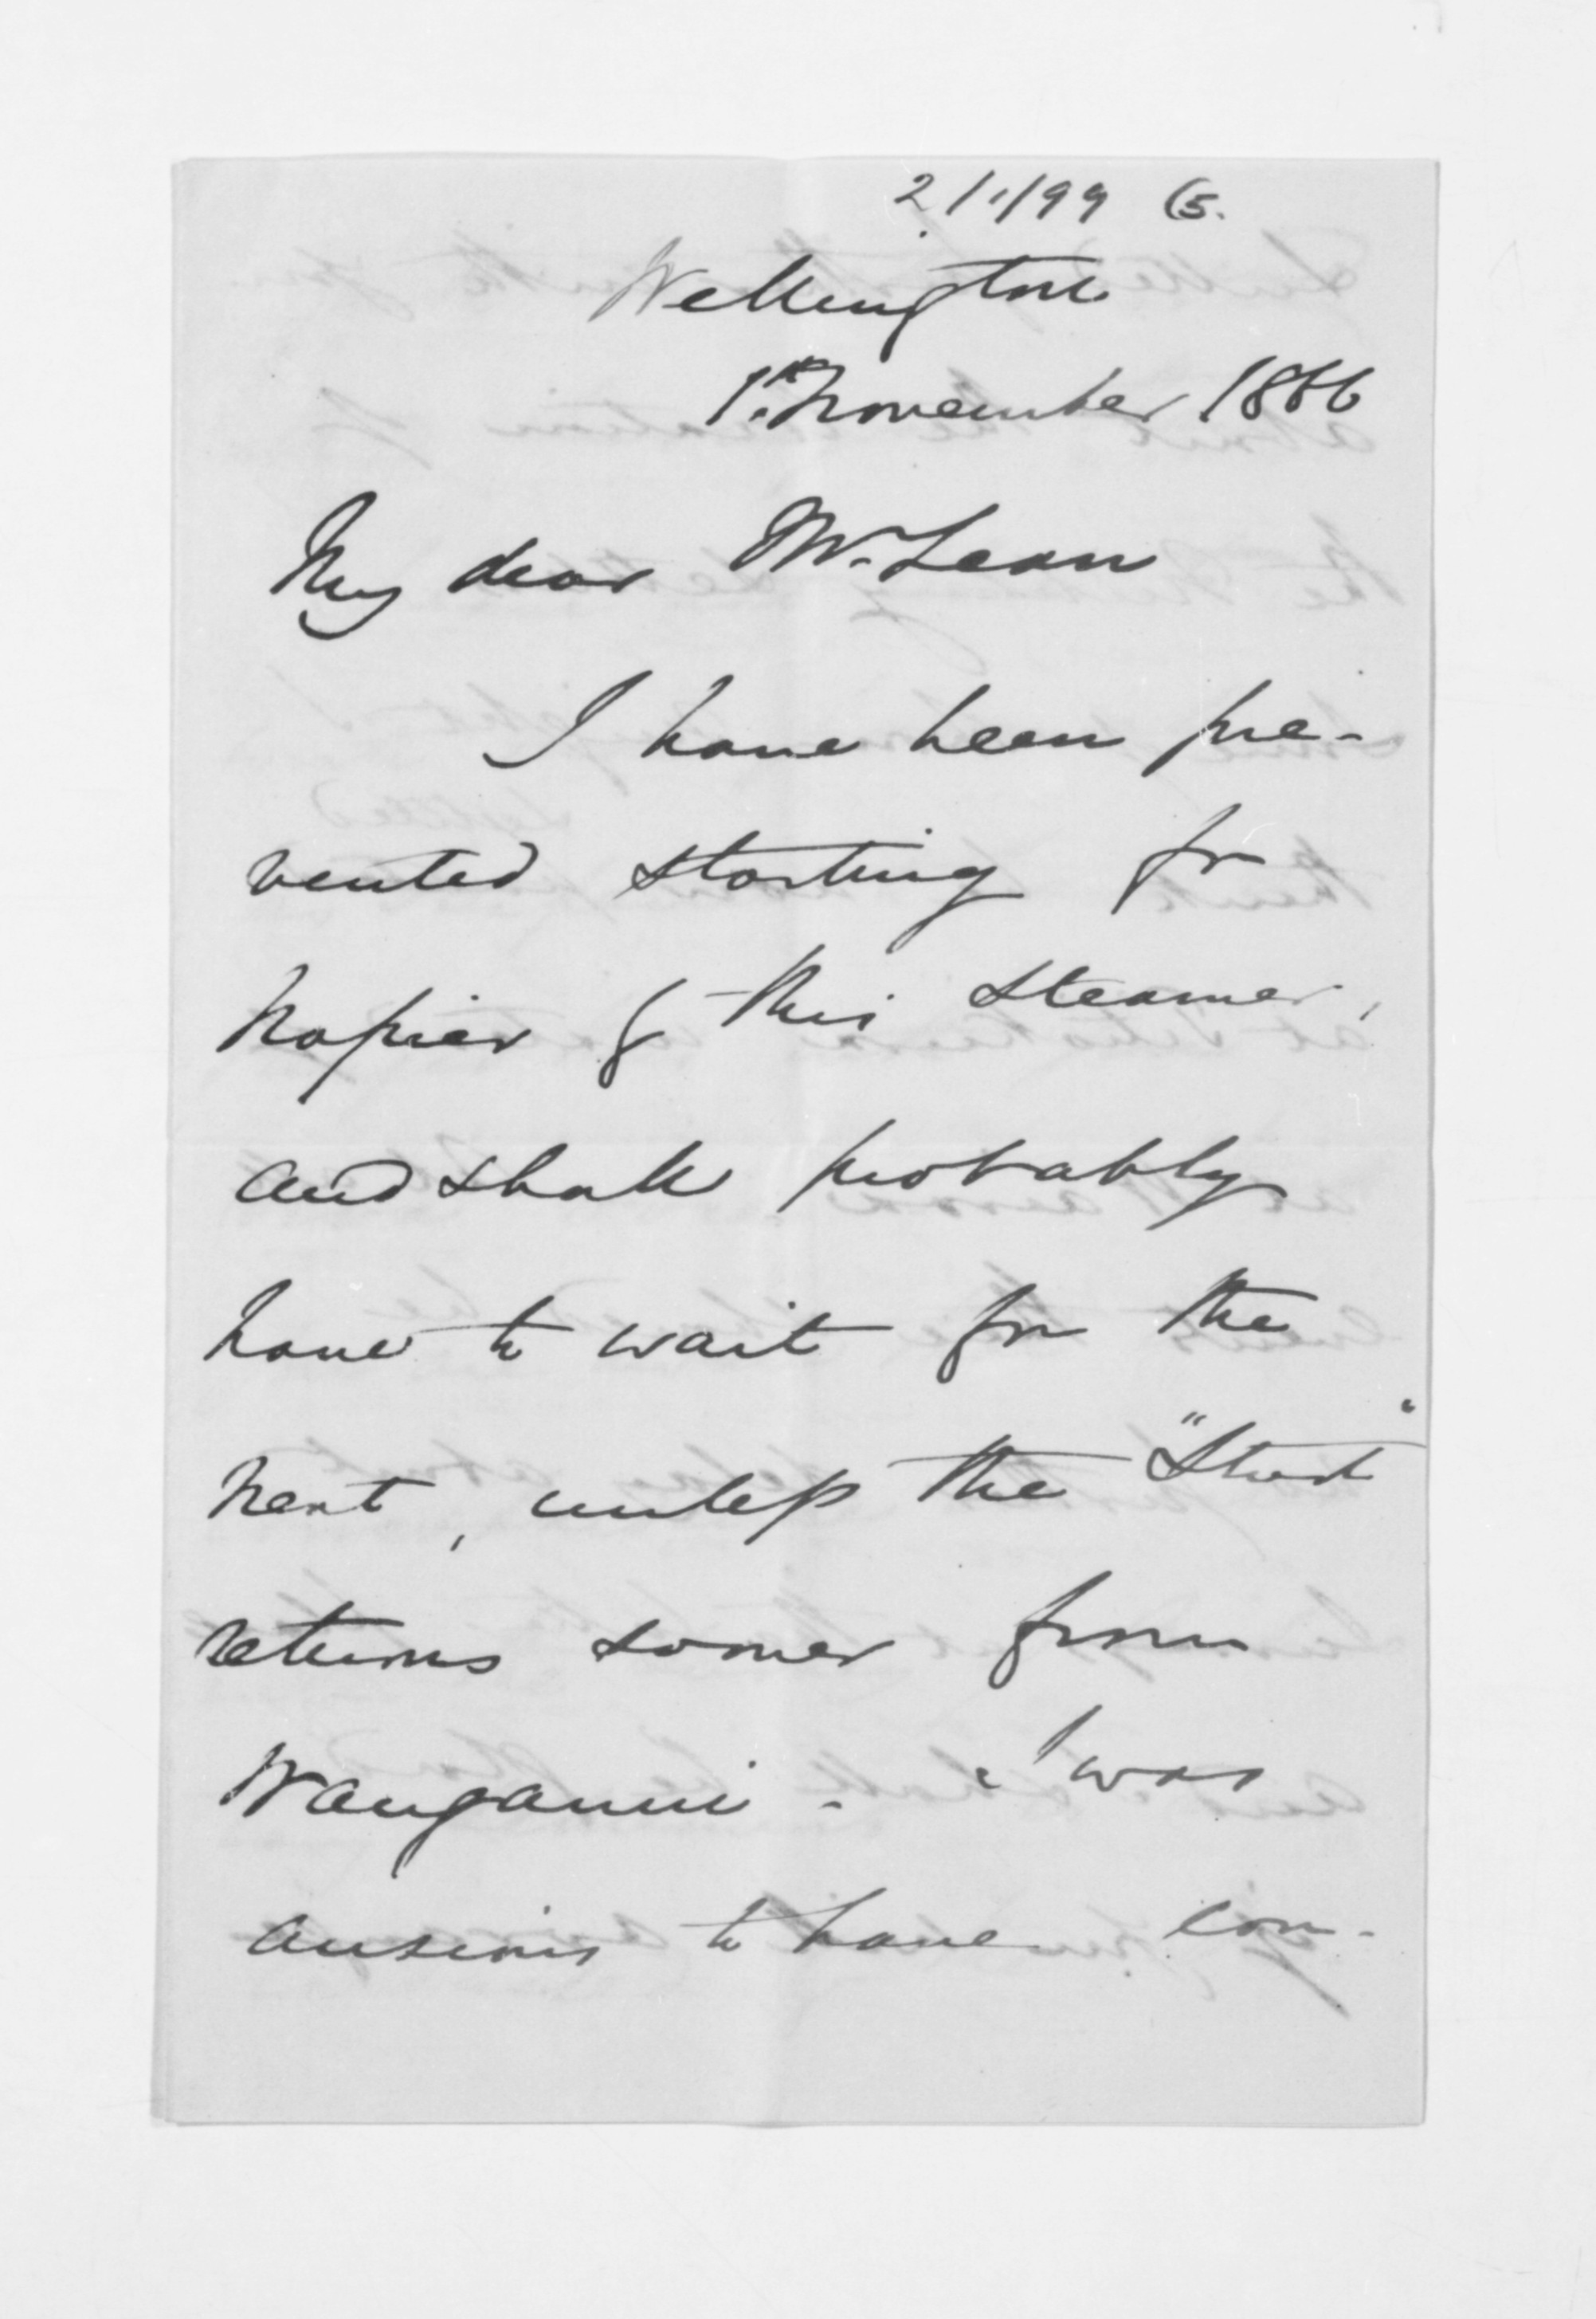 2/1/99 G.
Wellington
1st. November 1866
My dear McLean
I have been pre-
vented starting for
Napier by this steamer,
and shall probably
have to wait for the
next, unless the "Sturt"
returns sooner from
Wanganui. I was
anxious to have com-